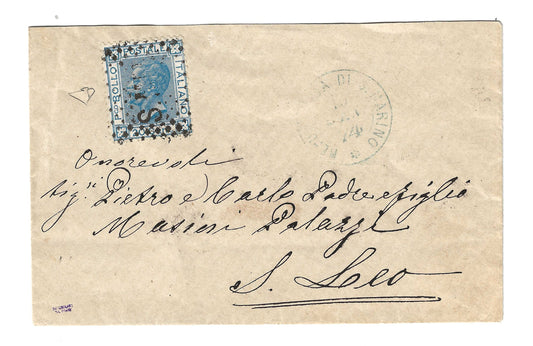 POSTALE
ITALIANO
BOLLO
DI S. MARINO
74
Onorevoli
Sig.ri Pietro e Carlo Padre e figlio
Masini Palazzi
S. Leo